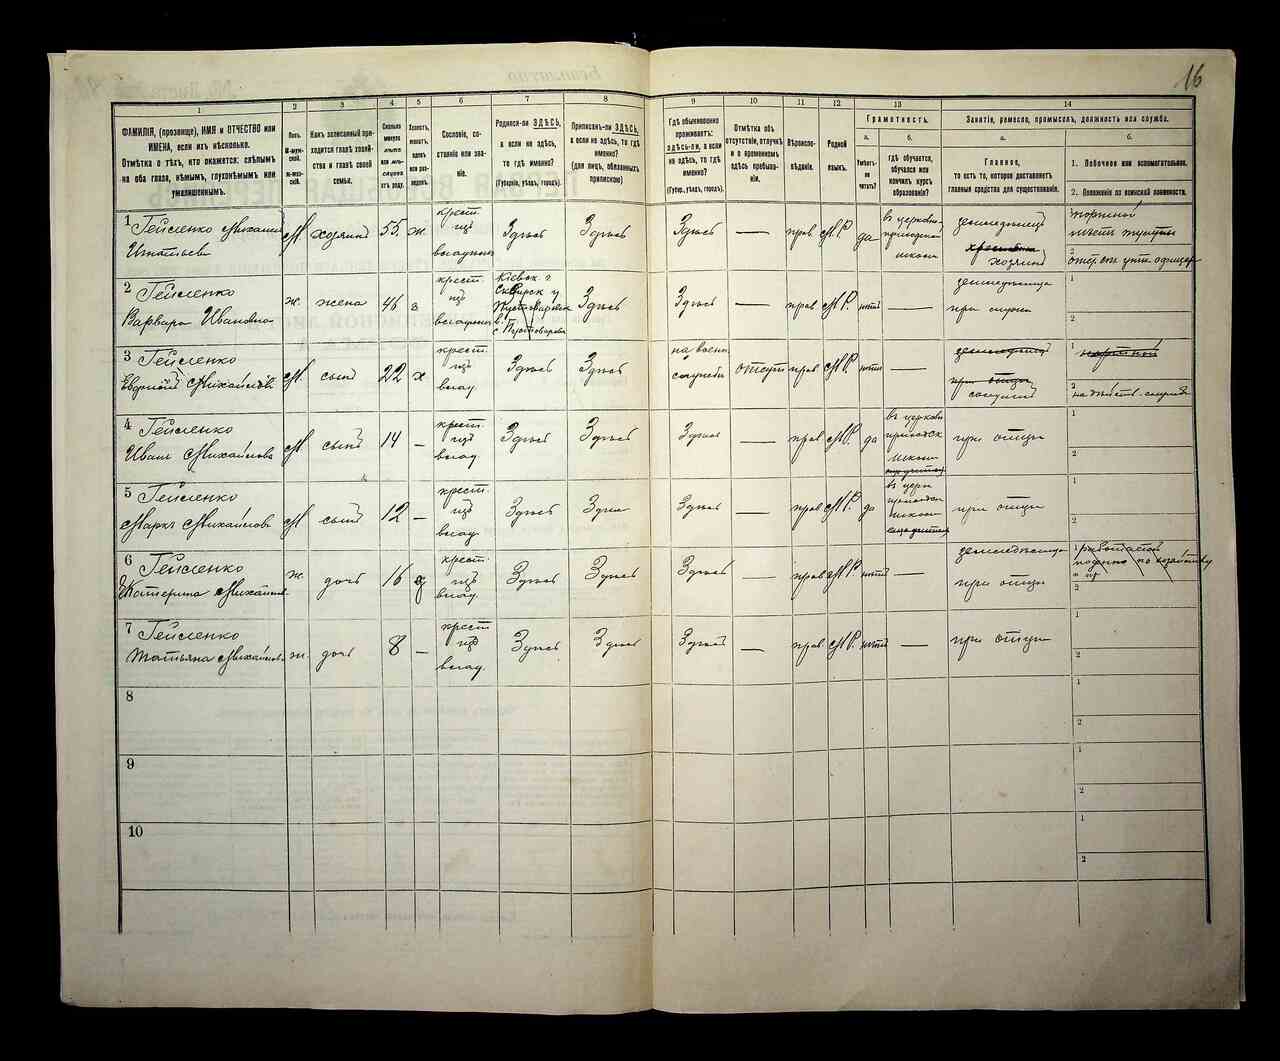 16
1
2
3
4
5
6
7
8
9
10
11
12
13
14
ФАМИЛІЯ, (прозвище), ИМЯ и ОТЧЕСТВО или
ИМЕНА, если ихъ нѣсколько.
Отмѣтка о тѣхъ, кто окажется: слѣпымъ
на оба глаза, нѣмымъ, глухонѣмымъ или
умалишеннымъ.
Полъ.
М-муж-
ской.
Ж-жен-
скій.
Какъ записанный при-
ходится главѣ хозяй-
ства и главѣ своей
семьи.
Сколько
минуло
лѣтъ
или мѣ-
сяцевъ
отъ роду.
Холостъ,
женатъ,
вдовъ
или раз-
веденъ.
Сословіе, со-
стояніе или зва-
ніе.
Родился-ли ЗДѢСЬ,
а если не здѣсь,
то гдѣ именно?
(Губернія, уѣздъ, городъ).
Приписанъ-ли ЗДѢСЬ,
а если не здѣсь, то гдѣ
именно?
(для лицъ, обязанныхъ
припискою)
Гдѣ обыкновенно
проживаетъ:
ЗДѢСЬ-ли, а если
не здѣсь, то гдѣ
именно?
(Губер., уѣздъ, городъ).
Отмѣтка объ
отсутствіи, отлучкѣ
и о временномъ
здѣсь пребыва-
ніи.
Вѣроиспо-
вѣданіе.
Родной
языкъ.
Грамотность.
а.
Умѣетъ-
ли чи-
тать?
б.
гдѣ обучается,
обучался или
кончилъ курсъ
образованія?
Занятіе, ремесло, промыселъ, должность или служба.
а.
Главное,
то есть то, которое доставляетъ
главныя средства для существованія.
б.
1. Побочное или вспомогательное.
2. Положеніе по воинской повинности.
1 Гейсленко Михаилъ
Игнатьевъ
М хозяинъ 55 ж
крест.
изъ
владѣльч
Здѣсь Здѣсь Здѣсь — прав М.Р. да
въ церковно
приходской
школѣ
земледѣлецъ
хозяинъ
1
2
отст. унт. офицер
2 Гейсленко
Варвара Ивановна
ж. жена 46 з
крест.
изъ
Кіевск. г.
Сквирск. у.
с. Пустоварова
Здѣсь Здѣсь — прав М.Р. нѣтъ —
земледѣлица
при мужѣ
1
2
3 Гейсленко
Евдокимъ Михайловъ
М. сынъ 22 х
крест.
изъ
влад.
Здѣсь Здѣсь
на воен.
службѣ
отсут прав М.Р. нѣтъ —
земледѣлецъ
при отцѣ
солдатъ
1
2
на дѣйств. службѣ
4 Гейсленко
Иванъ Михайловъ
М. сынъ 14 —
крест.
изъ
влад.
Здѣсь Здѣсь Здѣсь — прав М.Р. да
въ церковн
приходск
школѣ
при отцѣ
1
2
5 Гейсленко
Маркъ Михайловъ
М сынъ 12 —
крест.
изъ
влад.
Здѣсь Здѣсь Здѣсь — прав М.Р. да
въ церк
приходск
школѣ
при отцѣ
1
2
6 Гейсленко
Екатерина Михайлов.
ж. дочь 16
крест.
изъ
влад.
Здѣсь Здѣсь Здѣсь — прав М.Р. нѣтъ —
земледѣлица
при отцѣ
1
2
7 Гейсленко
Татьяна Михайлов.
ж. дочь 8 —
крест
изъ
влад.
Здѣсь Здѣсь Здѣсь — прав М.Р. нѣтъ —
при отцѣ
1
2
8
1
2
9
1
2
10
1
2